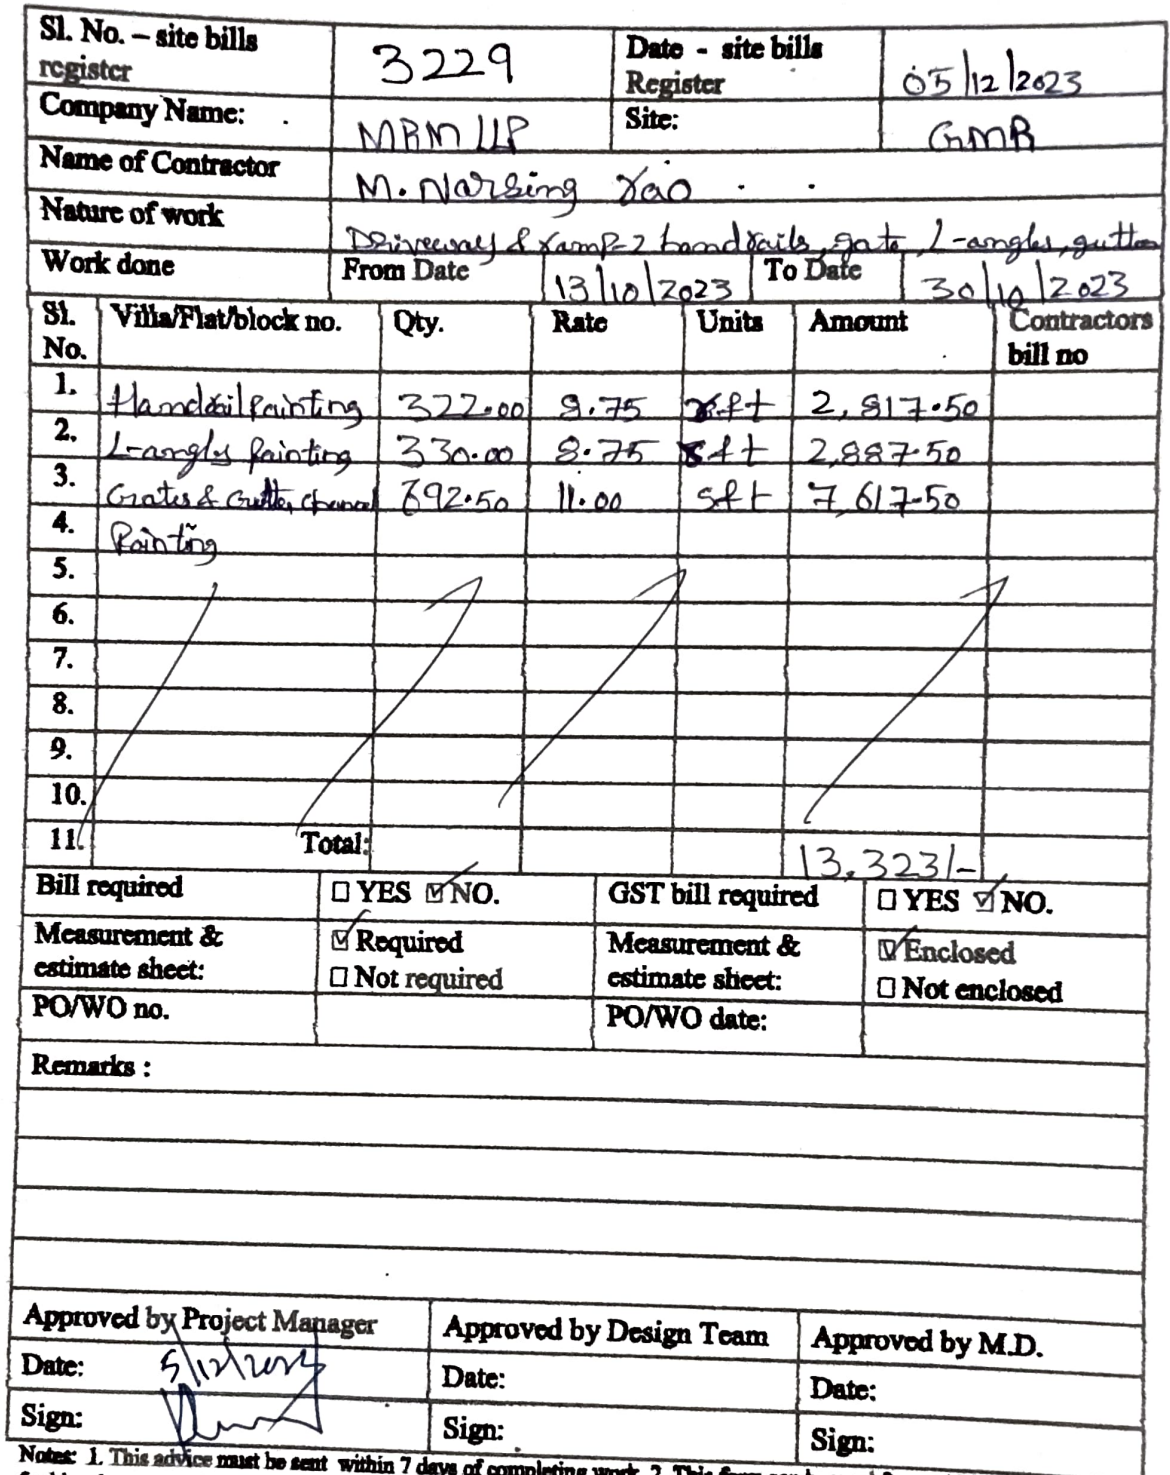 Sl. No. – site bills register 3229 Date - site bills Register 05/12/2023
Company Name: MRM LLP Site: GMR
Name of Contractor M. Narsing rao
Nature of work Driveway & ramp-2 handrails, gate, L-angles, gutter
Work done From Date 13/10/2023 To Date 30/10/2023
Sl. No. Villa/Flat/block no. Qty. Rate Units Amount Contractors bill no
1. Handrail painting 322.00 8.75 rft 2,817.50
2. L-angles painting 330.00 8.75 sft 2,887.50
3. Grates & Gutter channel 692.50 11.00 sft 7,617.50
4. Painting
5.
6.
7.
8.
9.
10.
11. Total: 13,323/-
Bill required ☐ YES ☑ NO. GST bill required ☐ YES ☑ NO.
Measurement & estimate sheet: ☑ Required ☐ Not required Measurement & estimate sheet: ☑ Enclosed ☐ Not enclosed
PO/WO no. PO/WO date:
Remarks :
Approved by Project Manager Approved by Design Team Approved by M.D.
Date: 5/12/2023 Date: Date:
Sign: Sign: Sign:
Notes: 1. This advice must be sent within 7 days of completing work. 2. This form